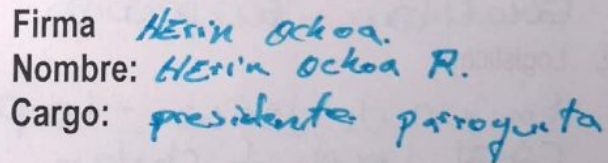 Firma Herin Ochoa.
Nombre: Herin Ochoa R.
Cargo: presidente parroquia